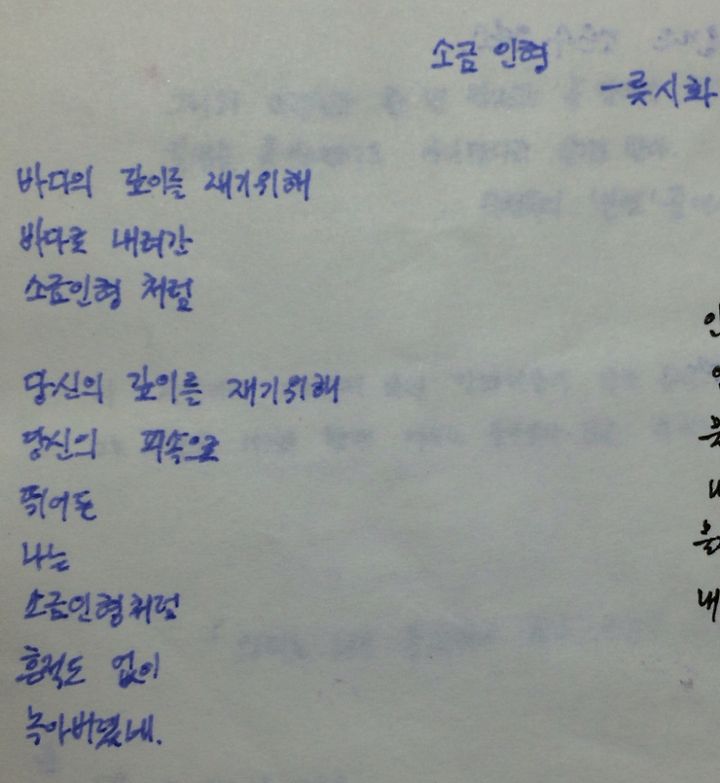 소금 인형
-류시화
바다의 깊이를 재기위해
바다로 내려간
소금인형 처럼
당신의 깊이를 재기위해
당신의 피속으로
뛰어든
나는
소금인형처럼
흔적도 없이
녹아버렸네.
내